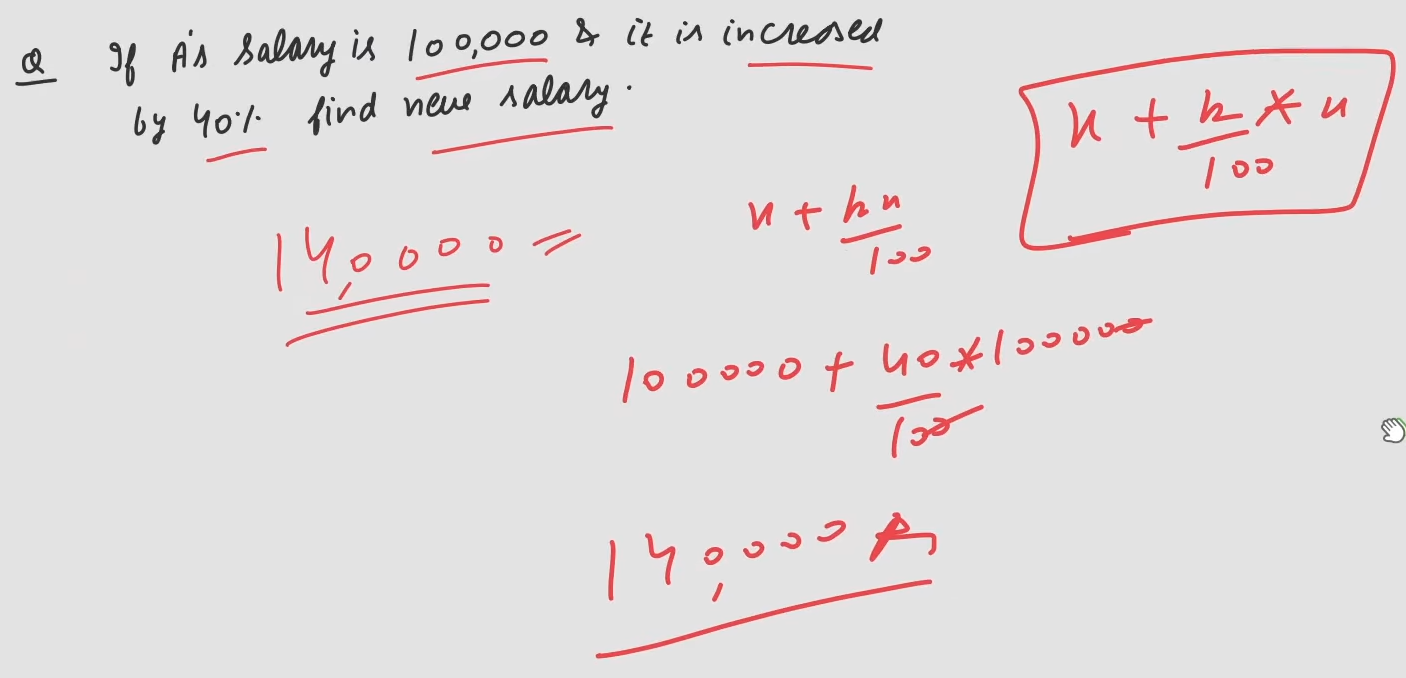 Q If A's salary is 100,000 & it is increased
by 40% find new salary.
x + k/100 * x
x + kx/100
14,0000 =
100000 + 40*100000/100
14,0000 A